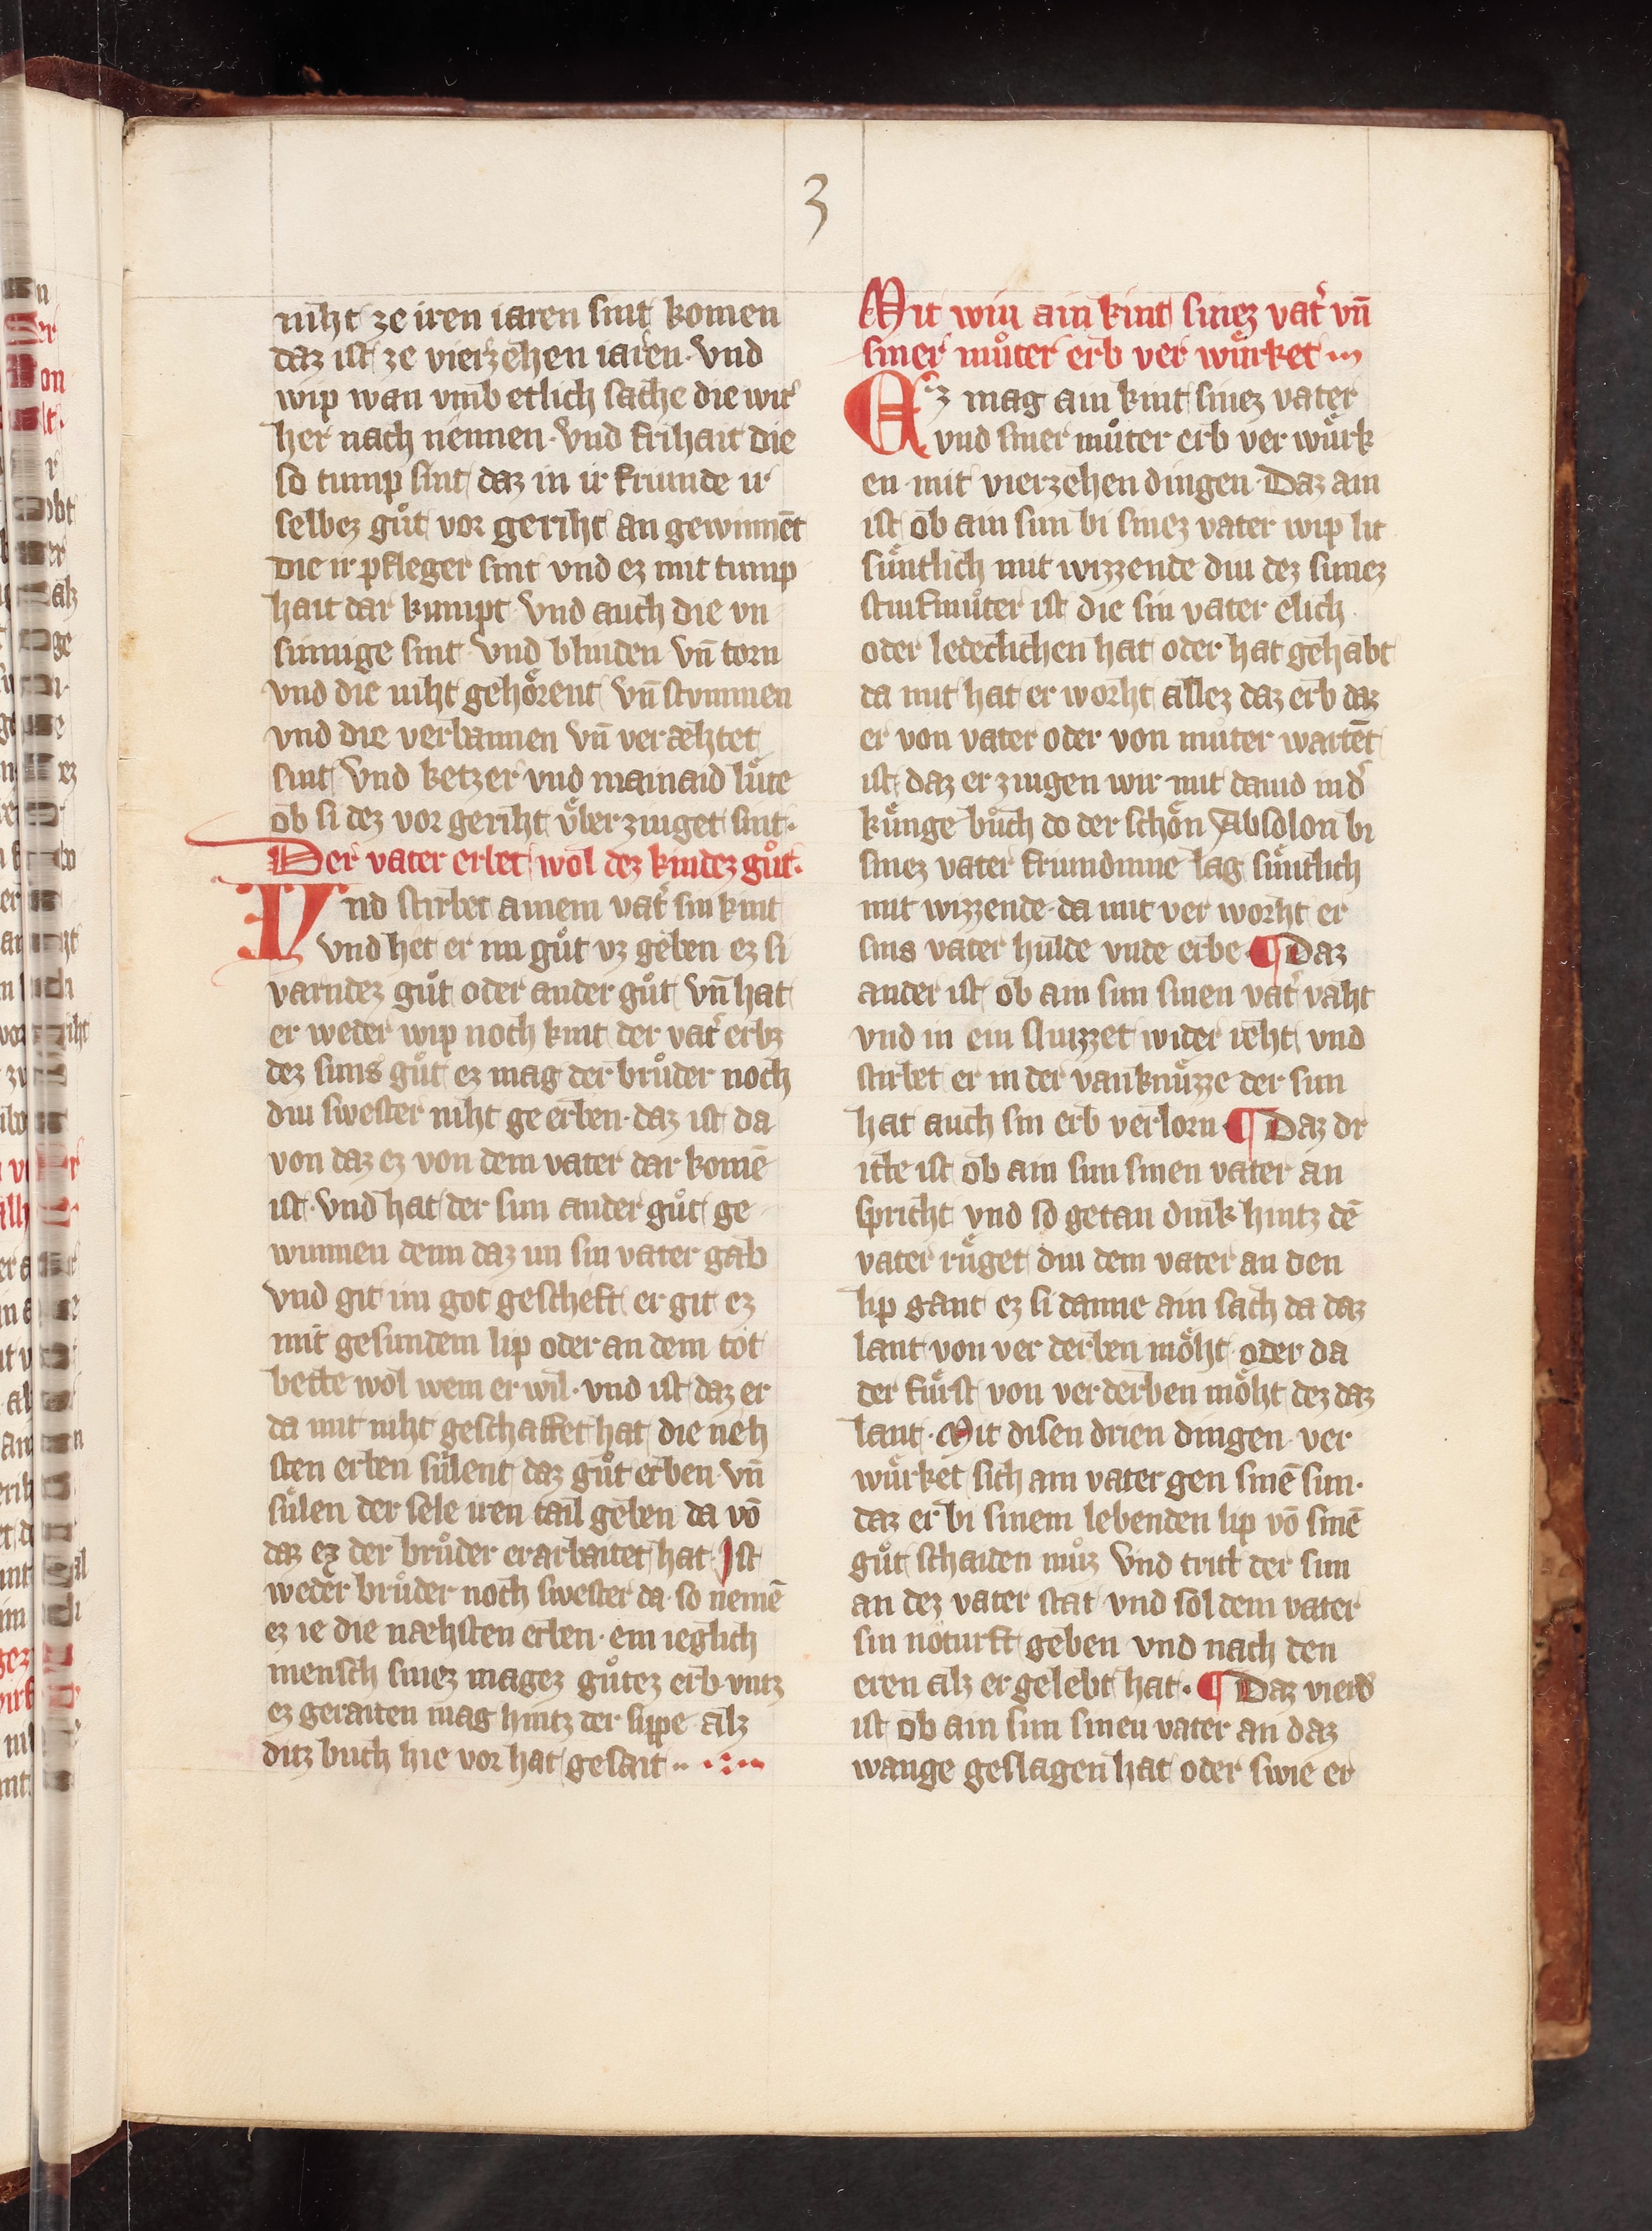 3
niht ze iren iaren sint komen
daz ist ze vierzehen iaren. vnd
wip wan vmb etlich sache die wir
her nach nennen. vnd frihait die
so tump sint daz in ir friunde ir
selbez gůt vor geriht an gewinnēt
die ir pfleger sint vnd ez mit tump
hait dar kumpt. vnd auch die vn
sinnige sint. vnd blinden vn̄ torn
vnd die niht gehoͤrent vn̄ stvmmen
vnd die verbannen vn̄ veræhtet
sint vnd ketzer vnd mainaid luͤte
ob si dez vor geriht v́ber ziuget sint.
Der vater erbet wol dez kindez gůt.
Vnd stirbet ainem vat͛ sin kint
vnd het er im gůt vz geben ez si
varndez gůt oder ander gůt vn̄ hat
er weder wip noch kint der vat͛ erbz
dez suns gůt ez mag der brůder noch
diu swester niht ge erben. daz ist da
von daz ez von dem vater dar komē
ist. vnd hat der sun ander gůt ge
wunnen denn daz im sin vater gab
vnd git im got gescheft er git ez
mit gesundem lip oder an dem tot
bette wol wem er wil. vnd ist daz er
da mit niht geschaffet hat die neh
sten erben suͤlent daz gůt erben. vn̄
suͤlen der sele iren tail geben da vō
daz ez der brůder erarbaitet hat. Ist
weder brůder noch swester da. so nemē
ez ie die næhsten erben. ein ieglich
mensch sinez magez gůtez erb vntz
ez geraiten mag hintz der sippe alz
ditz buch hie vor hat gesait
Mit wiu ain kint sinez vat͛ vn̄
siner můter erb ver wuͤrket
Ez mag ain kint sinez vater
vnd siner můter erb ver wuͤrk
en mit vierzehen dingen. Daz ain
ist ob ain sun bi sinez vater wip lit
suͤntlich mit wizzende diu dez sunez
stiufmůter ist die sin vater elich
oder ledeclichen hat oder hat gehabt
da mit hat er worht allez daz erb daz
er von vater oder von můter wartēt
ist. daz er ziugen wir mit dauid in d͛
kuͤnge bůch do der schoͤn Absolon bi
sinez vater friundinne lag suͤntlich
mit wizzende. da mit ver worht er
sins vater hulde vnde erbe. ¶ Daz
ander ist ob ain sun sinen vat͛ vaht
vnd in ein sluizzet wider reht vnd
stirbet er in der vanknuͤzze der sun
hat auch sin erb verlorn. ¶ Daz dr
itte ist ob ain sun sinen vater an
spricht vnd so getan dink hintz dē
vater ruͤget diu dem vater an den
lip gant ez si danne ain sach da daz
lant von ver derben moͤht. oder da
der fuͤrst von verderben moͤht dez daz
lant. Mit disen drien dingen ver
wuͤrket sich ain vater gen sinē sun.
daz er bi sinem lebenden lip vō sinē
gůt schaiden můz vnd tritt der sun
an dez vater stat vnd sol dem vater
sin noturft geben vnd nach den
eren alz er gelebt hat. ¶ Daz vierd͛
ist ob ain sun sinen vater an daz
wange geslagen hat oder swie er